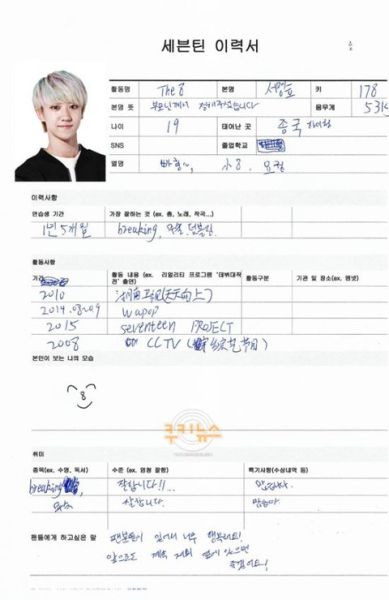 세븐틴 이력서
활동명 The 8 본명 서명호 키 178
본명 뜻 부모님께서 정해주셨습니다 몸무게
나이 19 태어난 곳 중국
SNS 졸업학교
별명 小8, 요정
이력사항
연습생 기간 가장 잘하는 것 (ex. 춤, 노래, 작곡...)
1년 5개월 breaking, 텀블링
활동사항
기간 활동 내용 (ex. 리얼리티 프로그램 '데뷔대작전' 출연) 활동구분 기관 및 장소(ex. 엠넷)
2010 (天天向上)
2014.08-09 wapop
2015 seventeen PROJECT
2008 CCTV
본인이 보는 나의 모습
8
쿠키뉴스
취미
종목(ex. 수영, 독서) 수준 (ex. 엄청 잘함) 특기사항(수상내역 등)
breaking 잘합니다!!...
잘합니다. 없습니다.
팬들에게 하고싶은 말 팬분들이 있어서 너무 행복해요!
앞으로도 계속 저희 옆에 있으면
좋겠어요!